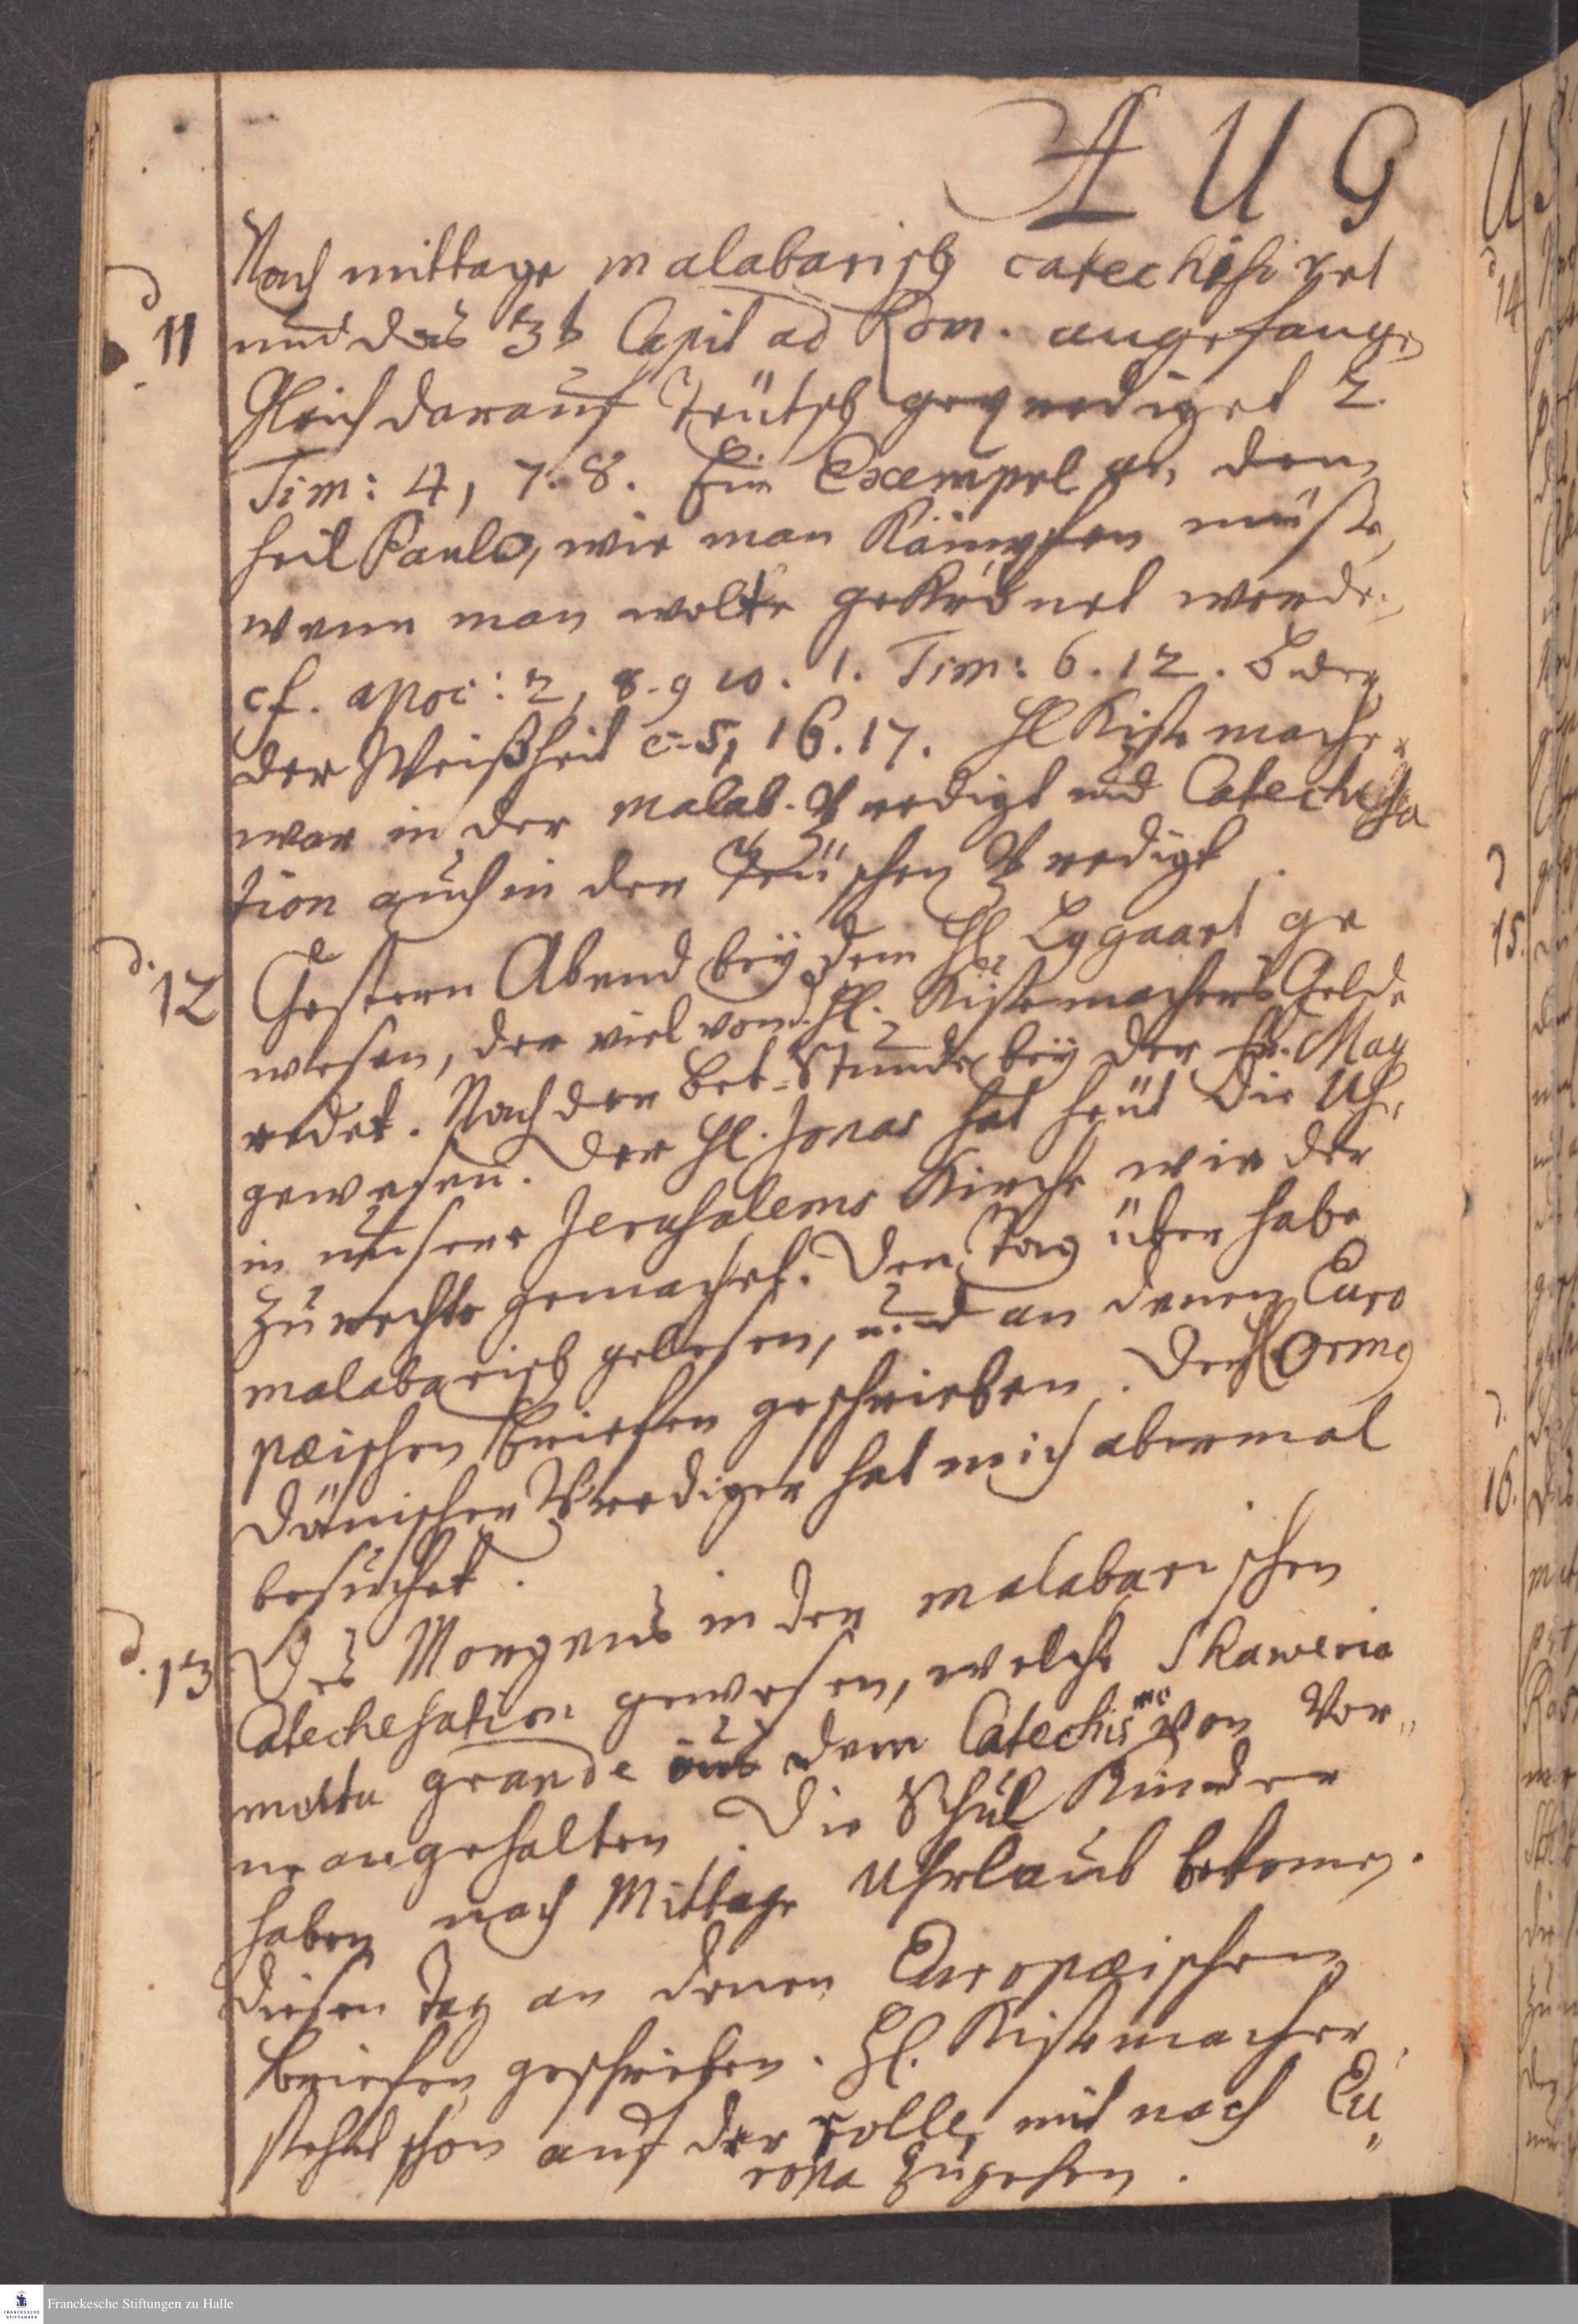 AUG
d 11
Nach mittage malabarisch catechisiret
und das 3t Capit ad Rom. angefange
Gleich darauf Teütsch geprediget 2.
Tim: 4, 7. 8. Ein Exempel an dem
heil Paulo, wie man Kämpfen müste,
wenn man wolte gekrönet werde.
cf. apoc: 2, 8. 9 10. 1. Tim: 6. 12.
der Weißheit c. 5, 16. 17. Hl Kistemacher
war in der malab. Predigt und Catechisa
tion auch in der Teüschen Predigt.
d. 12
Gestern Abend bey dem Hl Lygaart ge
wesen, der viel von d. Hl. Kistemachers Gelde
redet. Nach der Bet-Stunde bey der Fr. May
gewesen. Der Hl. Jonas hat heüt die Uhr
in unserer Jerusalems Kirche wieder
zu rechte gemachet. Den Tag über habe
malabarisch gelesen, und an denen Euro
pæischen Briefen geschrieben. Der Ormg
Dänischer Prediger hat mich abermal
besuchet.
d. 13
Des Morgens in der malabarischen
Catechesation gewesen, welche Skaweria
mottu grande aus dem Catechismo von Vor„
ne angehalten. Die Schul Kinder
haben nach Mittage Uhrlaub bekomen.
diesen Tag an denen Europæischen
Briefen geschrieben. Hl. Kistemacher
stehet schon auf der rolle, mit nach Eu„
ropa zugehen.
Franckesche Stiftungen zu Halle